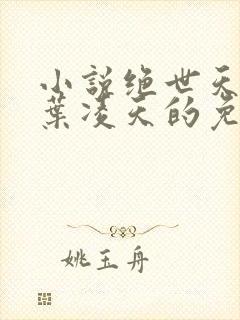 小説绝世天
葉凌天的免
姚玉舟